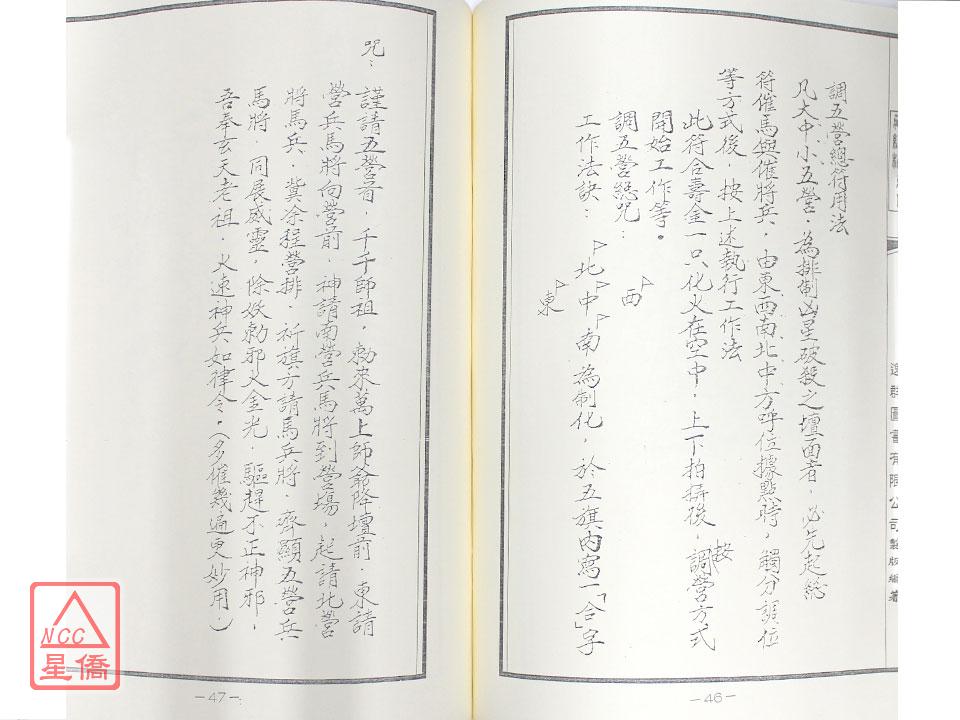 調五營總符用法
凡大中小五營．為排制凶星破殺之壇面者．必先起總
符催馬與催將兵．由東西南北中方呼位據點時，觸分設位
等方式後，按上述執行工作法
此符合壽金一只化火在空中．上下拍擇後，按調營方式
開始工作等。
調五營總咒：
工作法訣：
西
北中南為制化，於五旗內寫一「合」字
東
-46-
逸群圖書有限公司製版編著
咒：
謹請五營首，千千師祖．勅來萬上師爺降壇前．東請
營兵馬將向營前．神請南營兵馬將到營場，起請北營
將馬兵．冀涂程營排．祈旗方請馬兵將．齊顯五營兵
馬將．同展威靈，除妖勅邪火金光．驅趕不正神邪，
吾奉玄天老祖．火速神兵如律令。(多催幾遍更妙用。)
-47-
NCC
星僑